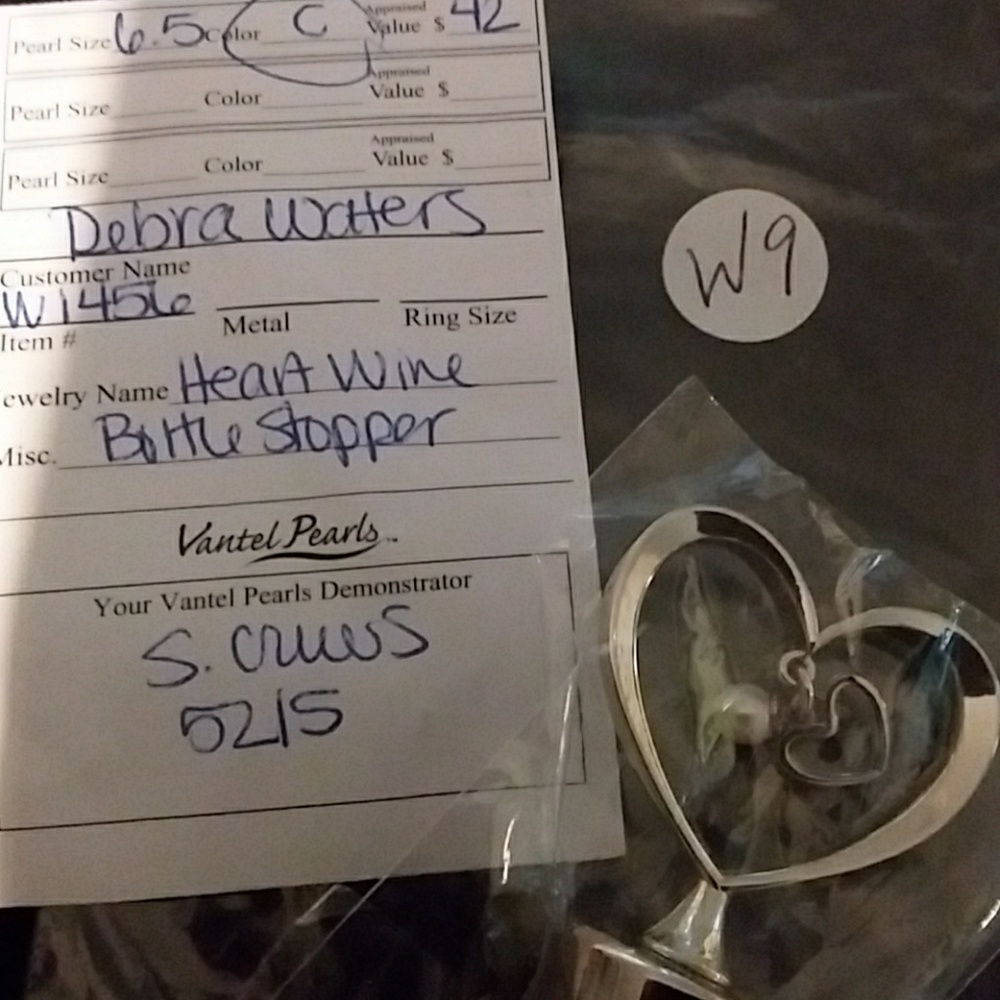 Pearl Size 6.5 Color C Appraised Value $ 42
Pearl Size Color Appraised Value $
Pearl Size Color Appraised Value $
Debra Waters
Customer Name
W1456
Item # Metal Ring Size
ewelry Name Heart Wine
Misc. Bottle Stopper
Vantel Pearls™
Your Vantel Pearls Demonstrator
S. Crews
5215
W9